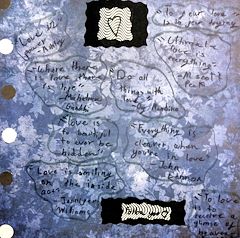 "Love is
power"
"Where there
is love there
is life"
Mahatma
Gandhi
"Love is
to
to ever be
hidden"
Love is smiling
on the inside
Jennifer
Williams
"To fear love
is to fear
Ultimate
love is
everything"
M Scott
Peck
"Do all
things with
love"
Og Mandino
"Everything
is
clearer when
you're in love"
John
Lennon
"To
love
is to
receive a
glimpse of
heaven"